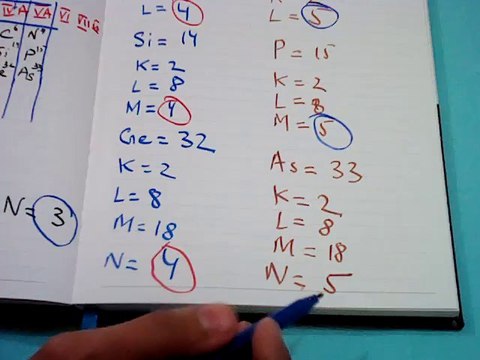 IV A VA VI VII
C N
Si P
As
N = 3
L = 4
Si = 14
K = 2
L = 8
M = 4
Ge = 32
K = 2
L = 8
M = 18
N = 4
L = 5
P = 15
K = 2
L = 8
M = 5
As = 33
K = 2
L = 8
M = 18
N = 5